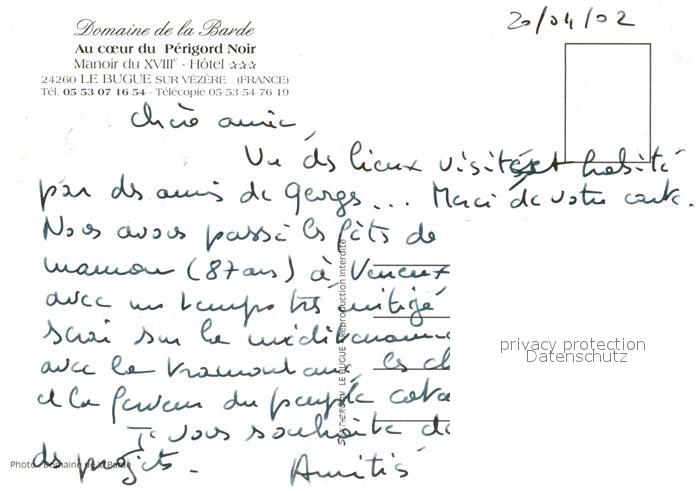 20/04/02
Domaine de la Barde
Au cœur du Périgord Noir
Manoir du XVIIIe - Hôtel ☆☆☆
24260 LE BUGUE SUR VÉZÈRE (FRANCE)
Tél. 05 53 07 16 54 - Télécopie 05 53 54 76 19
chère amie,
Vu des lieux visités et habité
par des amis de Georgs... Merci de votre carte.
Nous avons passé les fêts de
maman (87 ans) à
avec un temps très mitigé
serai sur la méditerranné
avec la tramontane, les
et la ferveur du peuple cata
Je vous souhaite de
ds projets. Amitiés
LE BUGUE Reproduction interdite
Photo : Domaine de la Barde
privacy protection
Datenschutz